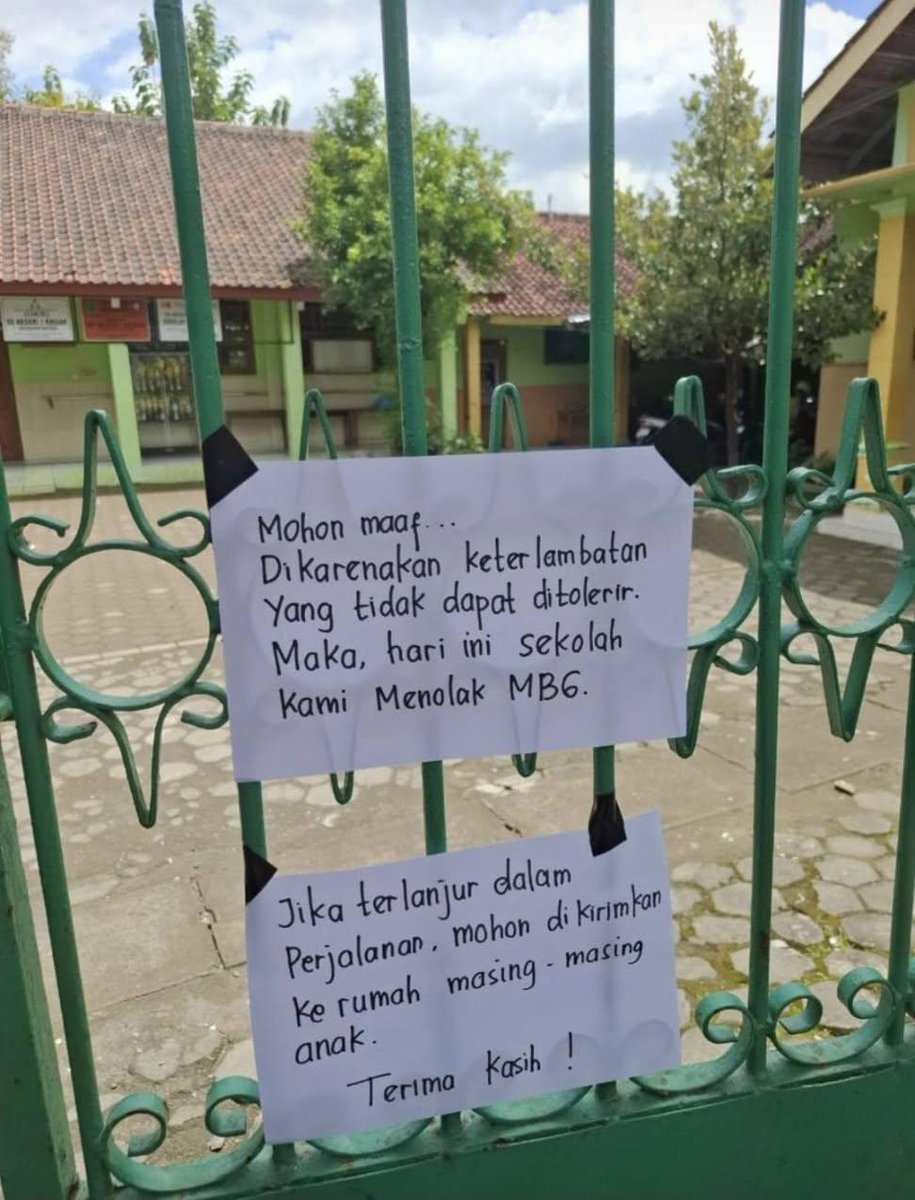 SD NEGERI 1
Mohon maaf...
Dikarenakan keterlambatan
Yang tidak dapat ditolerir.
Maka, hari ini sekolah
Kami Menolak MBG.
Jika terlanjur dalam
Perjalanan, mohon dikirimkan
Ke rumah masing-masing
anak.
Terima kasih !